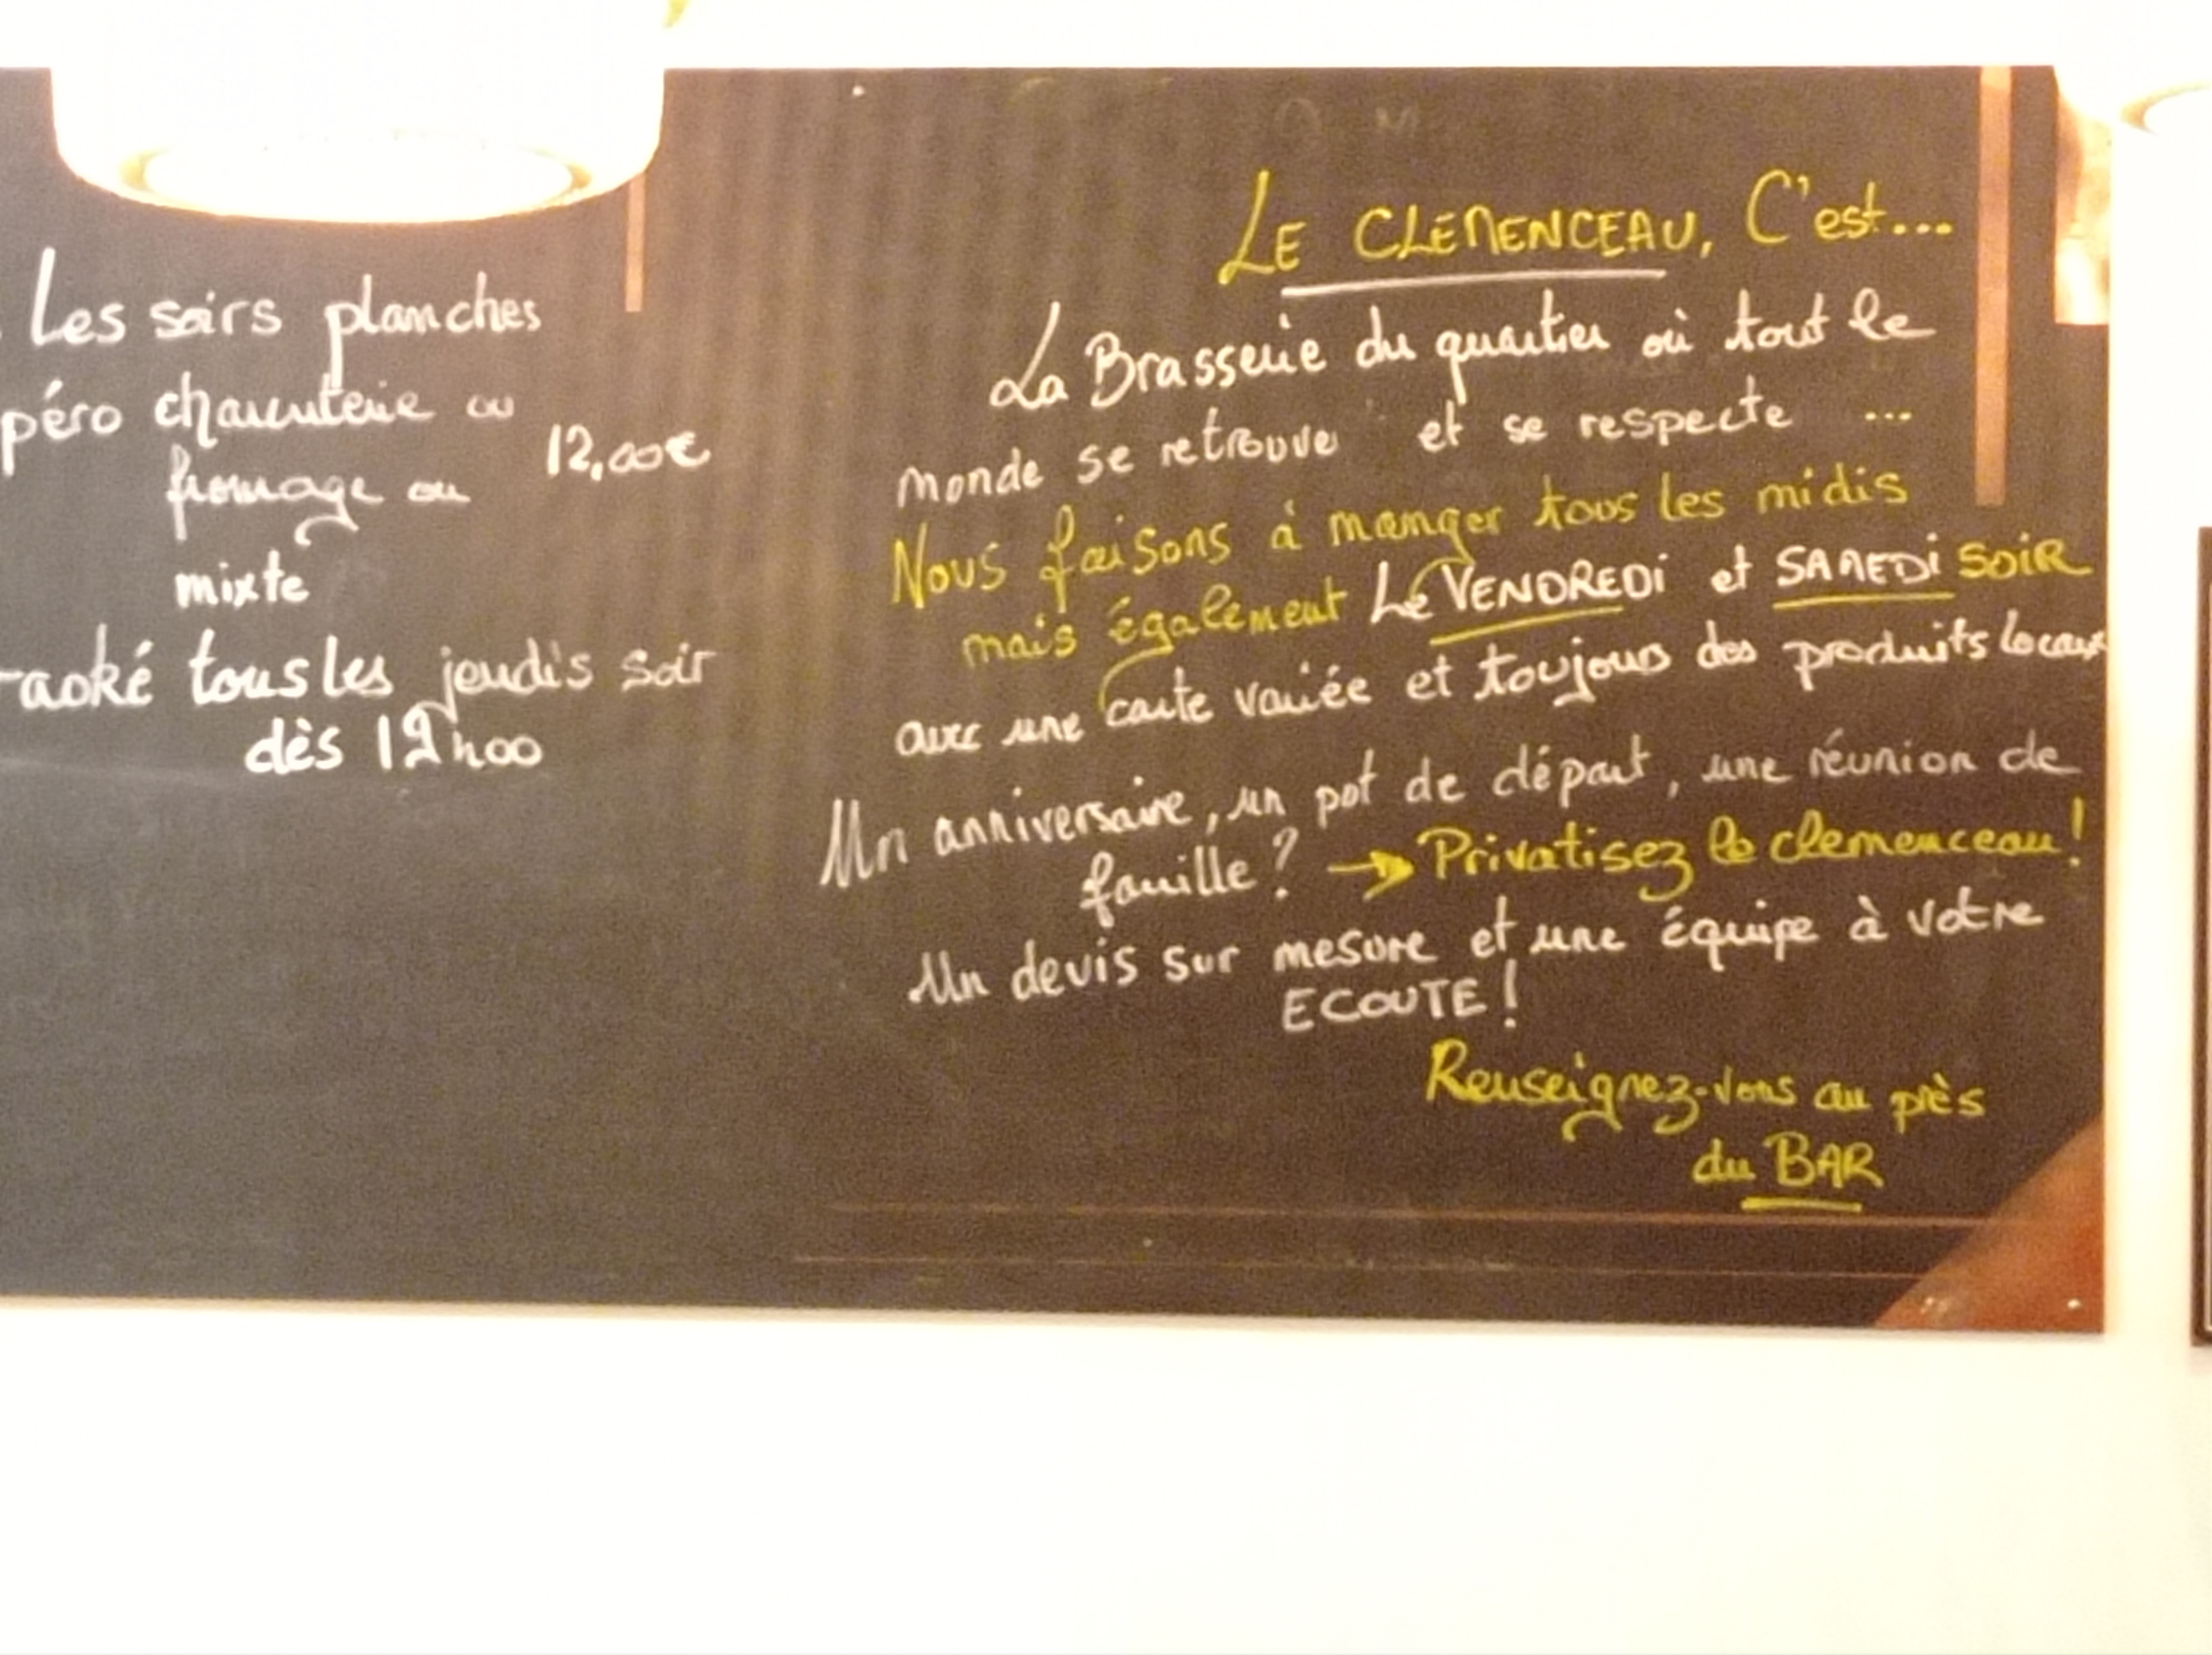 Les soirs planches
péro charcuterie ou
12,00€
fromage ou
mixte
raoké tous les jeudis soir
dès 19h00
LE CLEMENCEAU, C'est...
La Brasserie du quartier où tout le
monde se retrouve et se respecte ...
Nous faisons à manger tous les midis
mais également Le VENDREDI et SAMEDI SOIR
avec une carte variée et toujours des produits locaux
Un anniversaire, un pot de départ, une réunion de
famille? → Privatisez le clemenceau!
Un devis sur mesure et une équipe à votre
ECOUTE!
Renseignez-vous au près
du BAR